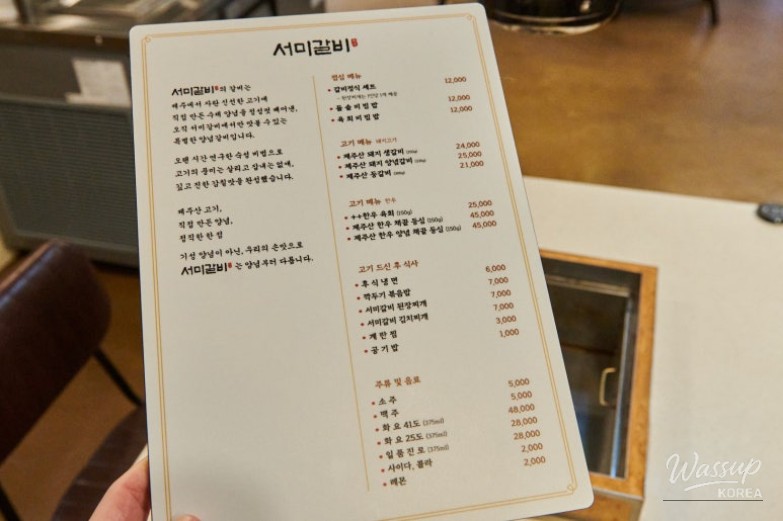 서미갈비
서미갈비의 갈비는
제주에서 사란 신선한 고기에
직접 만든 수제 양념을 정성껏 배어낸,
오직 서미갈비에서만 맛볼 수 있는
특별한 양념갈비입니다.
오랜 시간 연구한 숙성 비법으로
고기의 풍미는 살리고 잡내는 없애,
깊고 진한 감칠맛을 완성했습니다.
제주산 고기,
직접 만든 양념,
정직한 한 점
기성 양념이 아닌, 우리의 손맛으로
서미갈비는 양념부터 다릅니다.
점심 메뉴
갈비정식 세트 12,000
돌솥비빔밥 12,000
육회비빔밥 12,000
고기 메뉴 돼지고기
제주산 돼지 생갈비 24,000
제주산 돼지 양념갈비 25,000
제주산 등갈비 21,000
고기 메뉴 한우
++한우 육회 (150g) 25,000
제주산 한우 채끝 등심 (150g) 45,000
제주산 한우 양념 채끝 등심 (150g) 45,000
고기 드신 후 식사
후식냉면 6,000
깍두기 볶음밥 7,000
서미갈비 된장찌개 7,000
서미갈비 김치찌개 7,000
계란찜 3,000
공기밥 1,000
주류 및 음료
소주 5,000
맥주 5,000
화요 41도 (375ml) 48,000
화요 25도 (375ml) 28,000
일품진로 (375ml) 28,000
사이다, 콜라 2,000
레몬 2,000
Wassup
KOREA